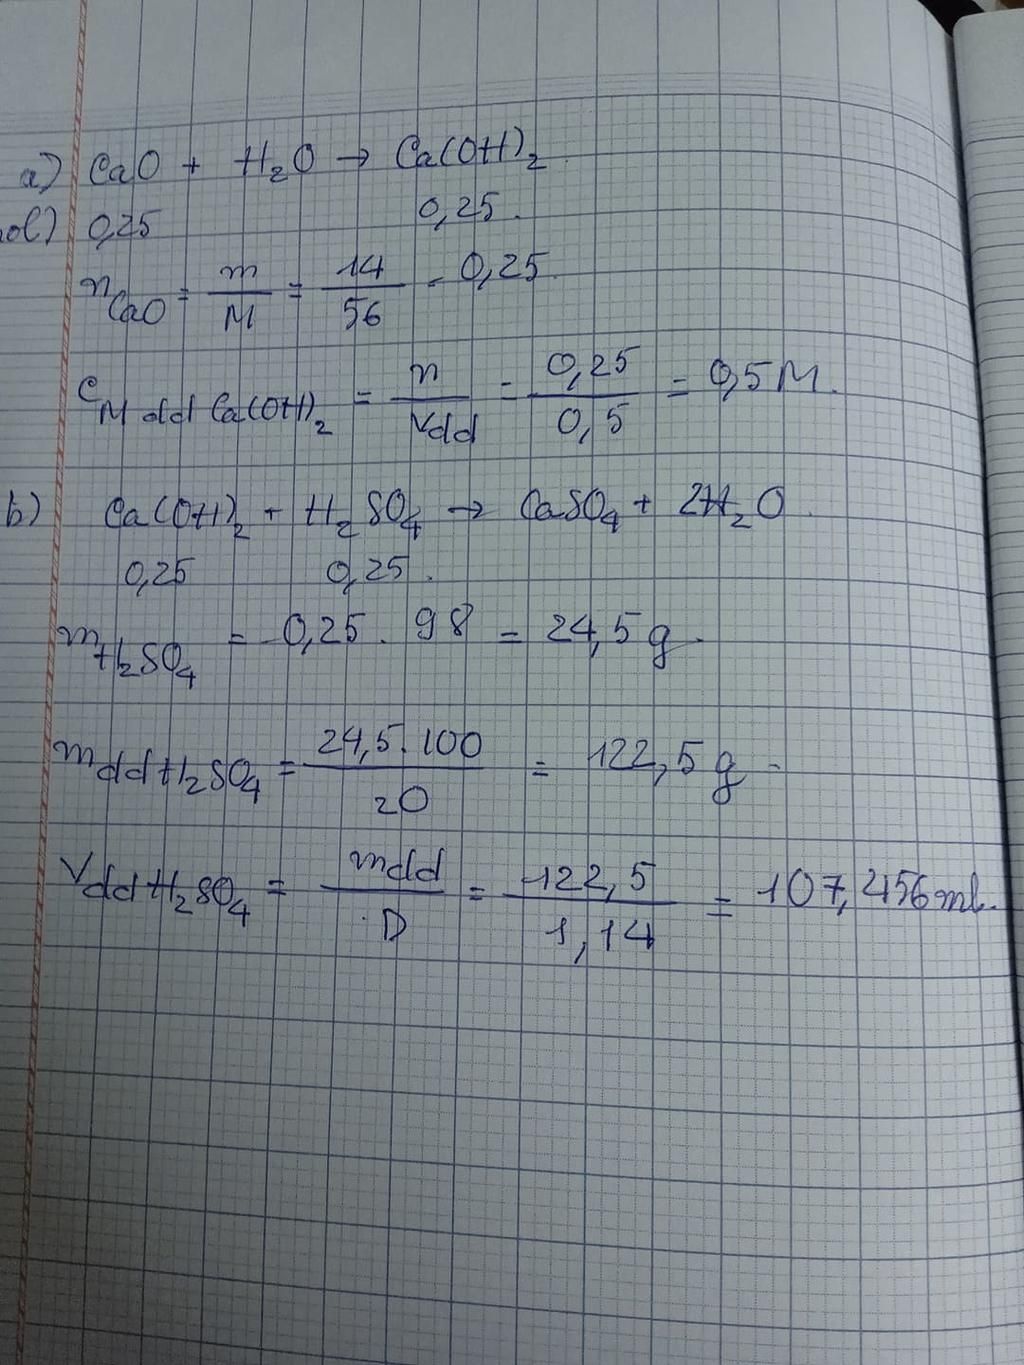 a) CaO + H₂O → Ca(OH)₂
ol) 0,25 0,25.
nCaO = m/M = 14/56 = 0,25.
CM dd Ca(OH)₂ = n/Vdd = 0,25/0,5 = 0,5M.
b) Ca(OH)₂ + H₂SO₄ → CaSO₄ + 2H₂O.
0,25 0,25.
mH₂SO₄ = 0,25 . 98 = 24,5 g.
mddH₂SO₄ = 24,5.100/20 = 122,5 g.
VddH₂SO₄ = mdd/D = 122,5/1,14 = 107,456ml.